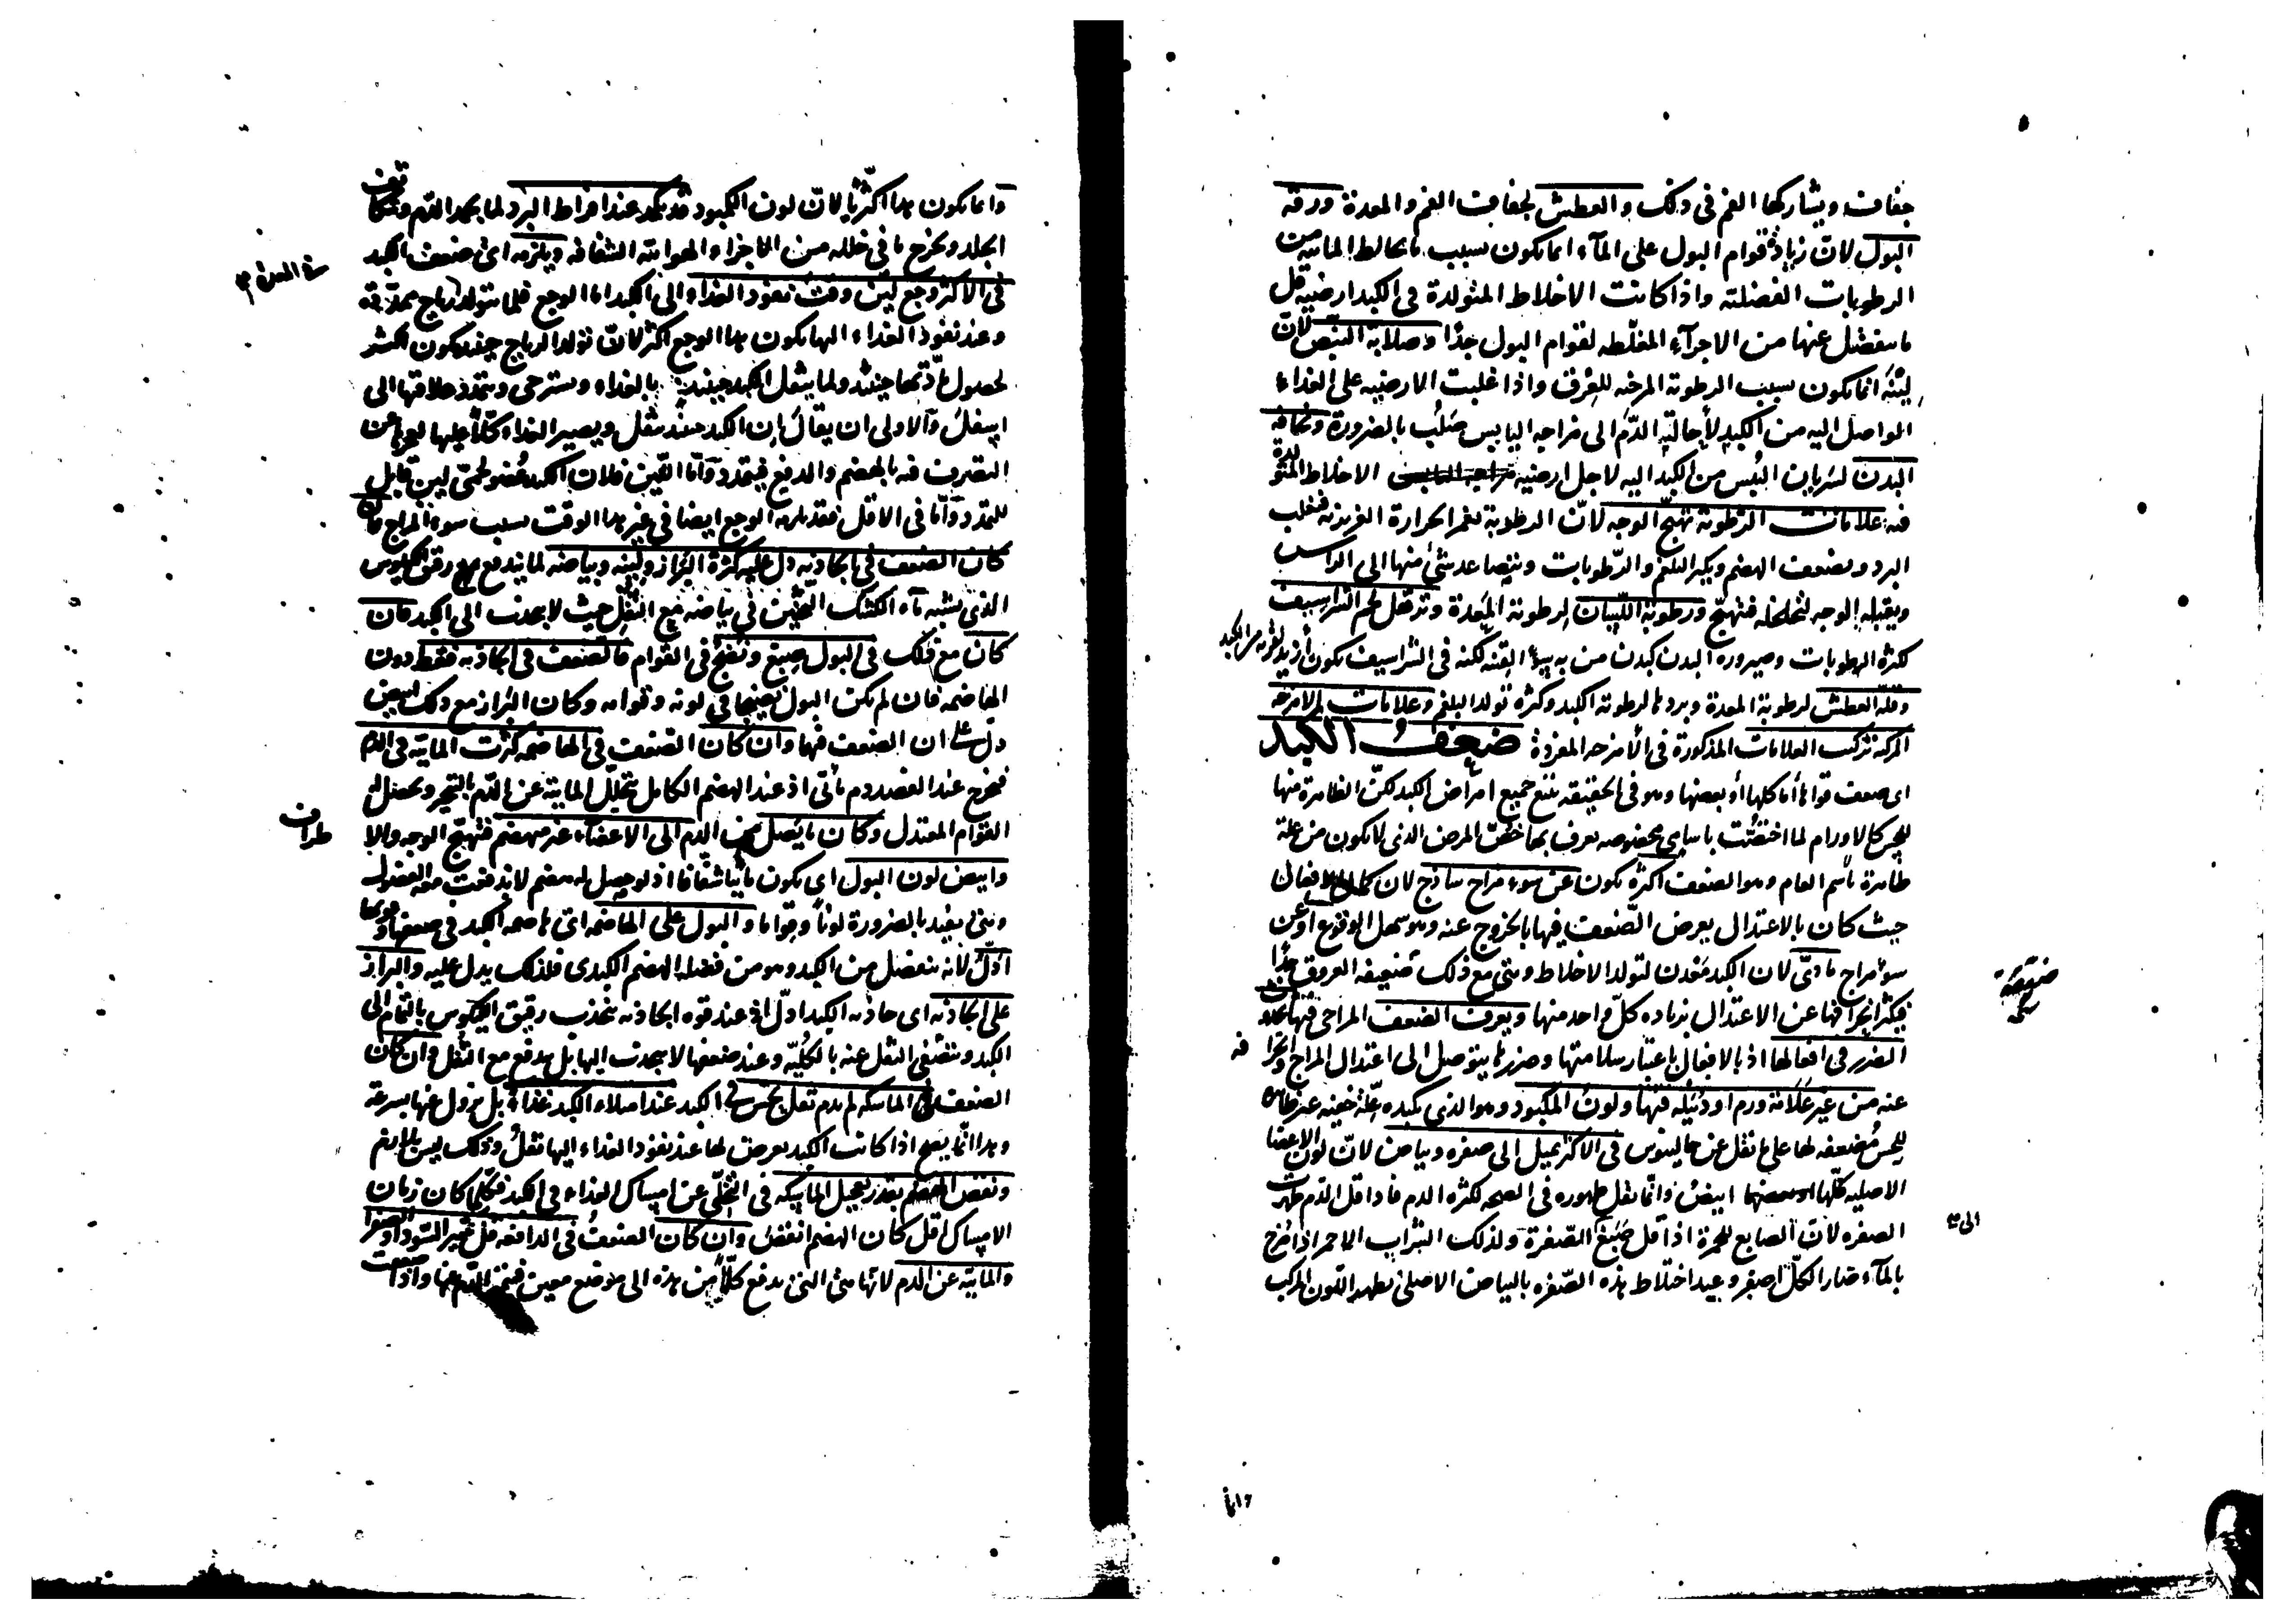 جفاف ويشاركها الفم في ذلك والعطش لجفاف الفم والمعدة ورقة
البول لان زيادة قوام البول على الماء انما يكون بسبب ما يخالط المائية من
الرطوبات الفضلية واذا كانت الاخلاط المتولدة في الكبد ارضية قل
ما ينفصل عنها من الاجزاء المغلظه لقوام البول جدا وصلابة النبض لان
لينه انما يكون بسبب الرطوبة المرخيه للعرق واذا غلبت الارضيه على الغذاء
الواصل اليه من الكبد لاحالته الدم الى مزاجه اليابس صلب بالضرورة ونحافة
البدن لسريان اليبس من الكبد اليه لاجل ارضيه الاخلاط المتولدة
فيه علامات الرطوبة تهيج الوجه لان الرطوبة تغمر الحرارة الغريزية فيغلب
البرد ويضعف الهضم ويكثر البلغم والرطوبات ويتصاعد شئ منها الى الراس
ويقبله الوجه لتخلخله فيتهيج ورطوبة اللسان لرطوبة المعدة وترهل لحم الشراسيف
لكثرة الرطوبات وصيرورة البدن كبدن من به سوء القنيه لكنه في الشراسيف يكون ازيد لقربه من الكبد
وقلة العطش لرطوبة المعدة وبردها لرطوبة الكبد وكثرة تولد البلغم وعلامات الامزجه
المركبة تركب العلامات المذكورة في الامزجه المفردة ضعف الكبد
اى ضعف قواها اما كلها او بعضها وهو في الحقيقه يتبع جميع امراض الكبد لكن الظاهرة منها
للحس كالاورام لما اختصت باسامي مخصوصه يعرف بها خص المرض الذى لا يكون من علة
ظاهرة باسم العام وهو الضعف اكثره يكون عن سوء مزاج ساذج لان كمال الافعال
حيث كان بالاعتدال يعرض الضعف فيها بالخروج عنه وهو سهل الوقوع او عن
سوء مزاج مادى لان الكبد معدن لتولد الاخلاط وهي مع ذلك ضيقه العروق جدا
فيكثر انحرافها عن الاعتدال بزياده كل واحد منها ويعرف الضعف المزاجي فيها
الضرر في افعالها اذ بالافعال باعتبار سلامتها وضررها يتوصل الى اعتدال المزاج وانحرافه
عنه من غير علامة ورم او دبيله فيها ولون المكبود وهو الذى بكبده علة خفيه غير ظاهرة
للحس مضعفه لها على ما نقل عن جالينوس في الاكثر يميل الى صفره وبياض لان لون الاعضا
الاصليه كلها او بعضها ابيض وانما يقل ظهوره في الصحه لكثرة الدم فاذا قل الدم ظهرت
الصفره لان الصابغ للحمرة اذا قل صبغ الصفرة ولذلك الشراب الاحمر اذا مزج
بالماء صار الكل اصفر وعند اختلاط هذه الصفره بالبياض الاصلى يظهر اللون المركب
ضيقة
الى
وانما يكون هذا اكثريا لان لون المكبود قد يكمد عند افراط البرد لما يجمد الدم ويتكاثف
الجلد ويخرج ما في خلله من الاجزاء الهوائية الشفافه ويلزمه اى ضعف الكبد
في الاكثر وجع لين وقت نفوذ الغذاء الى الكبد اما الوجع فلما يتولد رياح ممددة
وعند نفوذ الغذاء اليها يكون هذا الوجع اكثر لان تولد الرياح حينئذ يكون اكثر
لحصول مادتها حينئذ ولما يثقل الكبد حينئذ بالغذاء ويسترخى ويتمدد علاقتها الى
اسفل والاولى ان يقال ان الكبد حينئذ يثقل ويصير الغذاء كلا عليها لعجزها عن
التصرف فيه بالهضم والدفع فيتمدد واما اللين فلان الكبد عضو لحمى لين قابل
للتمدد واما في الاقل فقد يلزمه الوجع ايضا في غير هذا الوقت بسبب سوء المزاج فان
كان الضعف في الجاذبه دل عليه كثرة البراز ولينه وبياضه لما يندفع رقيق الكيلوس
الذى يشبه ماء الكشك الثخين في بياضه مع الثفل حيث لا يجذب الى الكبد فان
كان مع ذلك في البول صبغ ونضج في القوام فالضعف في الجاذبه فقط دون
الهاضمه فان لم يكن البول نضيجا في لونه وقوامه وكان البراز مع ذلك ابيض
دل على ان الضعف فيها وان كان الضعف في الهاضمه كثرت المائيه في الدم
فيخرج عند الفصد دم مائى اذ عند الهضم الكامل يتحلل المائية عن الدم بالتبخر ويحصل له
القوام المعتدل وكان ما يصل من الدم الى الاعضاء غير منهضم فتهيج الوجه والاطراف
وابيض لون البول اى يكون مائيا شفافا اذ لو حصل له هضم لاندفعت معه الفضول
وهي يفيد بالضرورة لونا وقواما والبول على الهاضمه اى هاضمه الكبد في ضعفها وقوتها
ادل لانه ينفصل من الكبد وهو من فضله الهضم الكبدى فلذلك يدل عليه والبراز
على الجاذبه اى جاذبه الكبد ادل اذ عند قوه الجاذبه ينجذب رقيق الكيلوس بالتمام الى
الكبد ويتصفى الثفل عنه بالكليه وعند ضعفها لا ينجذب اليها بل يندفع مع الثفل وان كان
الضعف في الماسكه لم يدم ثقل يحس في الكبد عند امتلاء الكبد غذاء بل يزول عنها بسرعة
وهذا انما يصح اذا كانت الكبد يعرض لها عند نفوذ الغذاء اليها ثقل وذلك ليس بلازم
ونقص الهضم بقدر تعجيل الماسكه في التخلى عن امساك الغذاء في الكبد فكلما كان زمان
الامساك اقل كان الهضم انقص وان كان الضعف في الدافعه قل تميز السوداء والصفرا
والمائية عن الدم لانها هي التى يدفع كلا من هذه الى موضع معين فيتميز الدم عنها واذا ضعفت